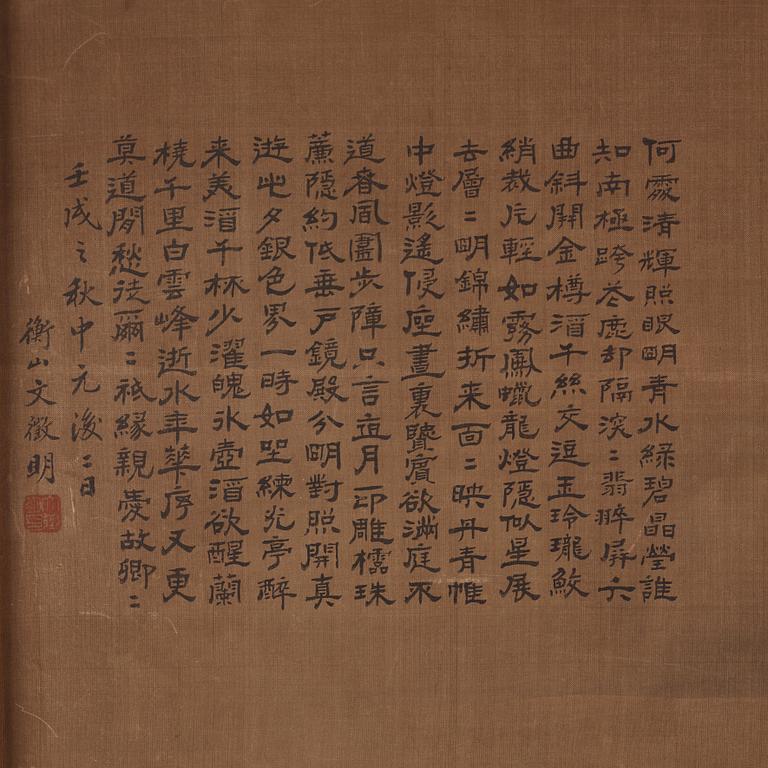 何處清輝照眼明青水緑碧晶瑩誰
知南極跨苍鹿却隔深〻翡翠屏六
曲斜開金樽酒千絲交逗玉玲瓏鮫
綃裁片輕如霧鳳蠟龍燈隱似星展
去層〻明錦繡折来面〻映丹青帷
中燈影遙侵座畫裏賢賓欲滿庭不
道春風圍步障只言壺月印雕櫺珠
簾隱約低垂戶鏡殿分明對照開真
遊此夕銀色界一時如坐練光亭醉
来美酒千杯少濯魄冰壺酒欲醒蘭
橈千里白雲峰逝水年華序又更
莫道閒愁徒爾〻祇緣親愛故卿〻
壬戌之秋中元後二日
衡山文徵明